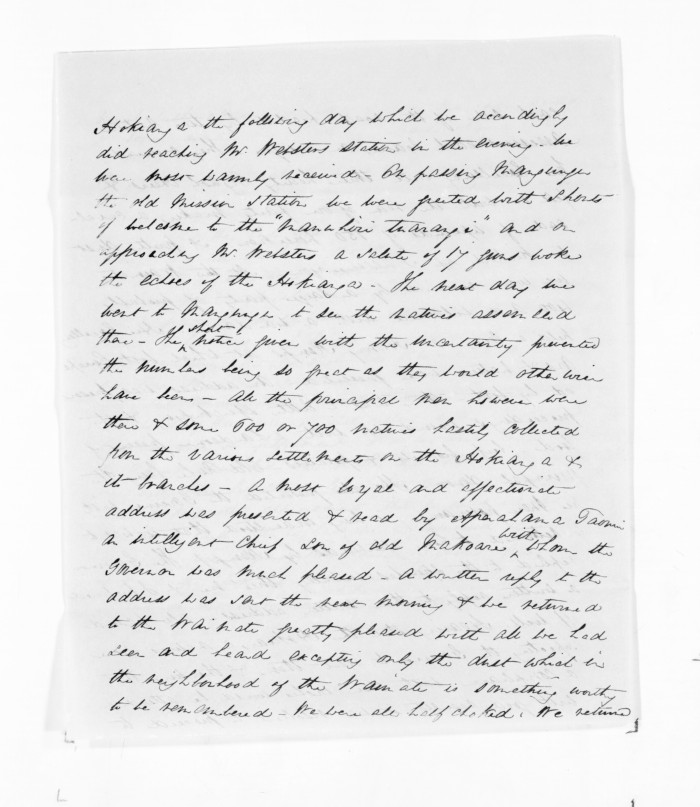 Hokianga the following day which we accordingly
did reaching Mr. Websters station in the evening. We
were most warmly received - On passing Mangungu
the old Mission Station we were greeted with Shouts
of welcome to the "Manuhiri tuarangi" and on
approaching Mr. Websters a salute of 17 guns woke
the echoes of the Hokianga - The next day we
went to Mangungu to see the natives assembled
there - The short notice given with the uncertainty prevented
the numbers being so great as they would otherwise
have been - All the principal men however were
there & some 600 or 700 natives hastily collected
from the various settlements on the Hokianga &
its branches - A most loyal and affectionate
address was presented & read by Taonui
an intelligent Chief son of old Makoare with whom the
Governor was much pleased - A written reply to the
address was sent the next morning & we returned
to the Waimate greatly pleased with all we had
seen and heard excepting only the dust which in
the neighborhood of the Waimate is something worthy
to be remembered - We were all half choked. We return